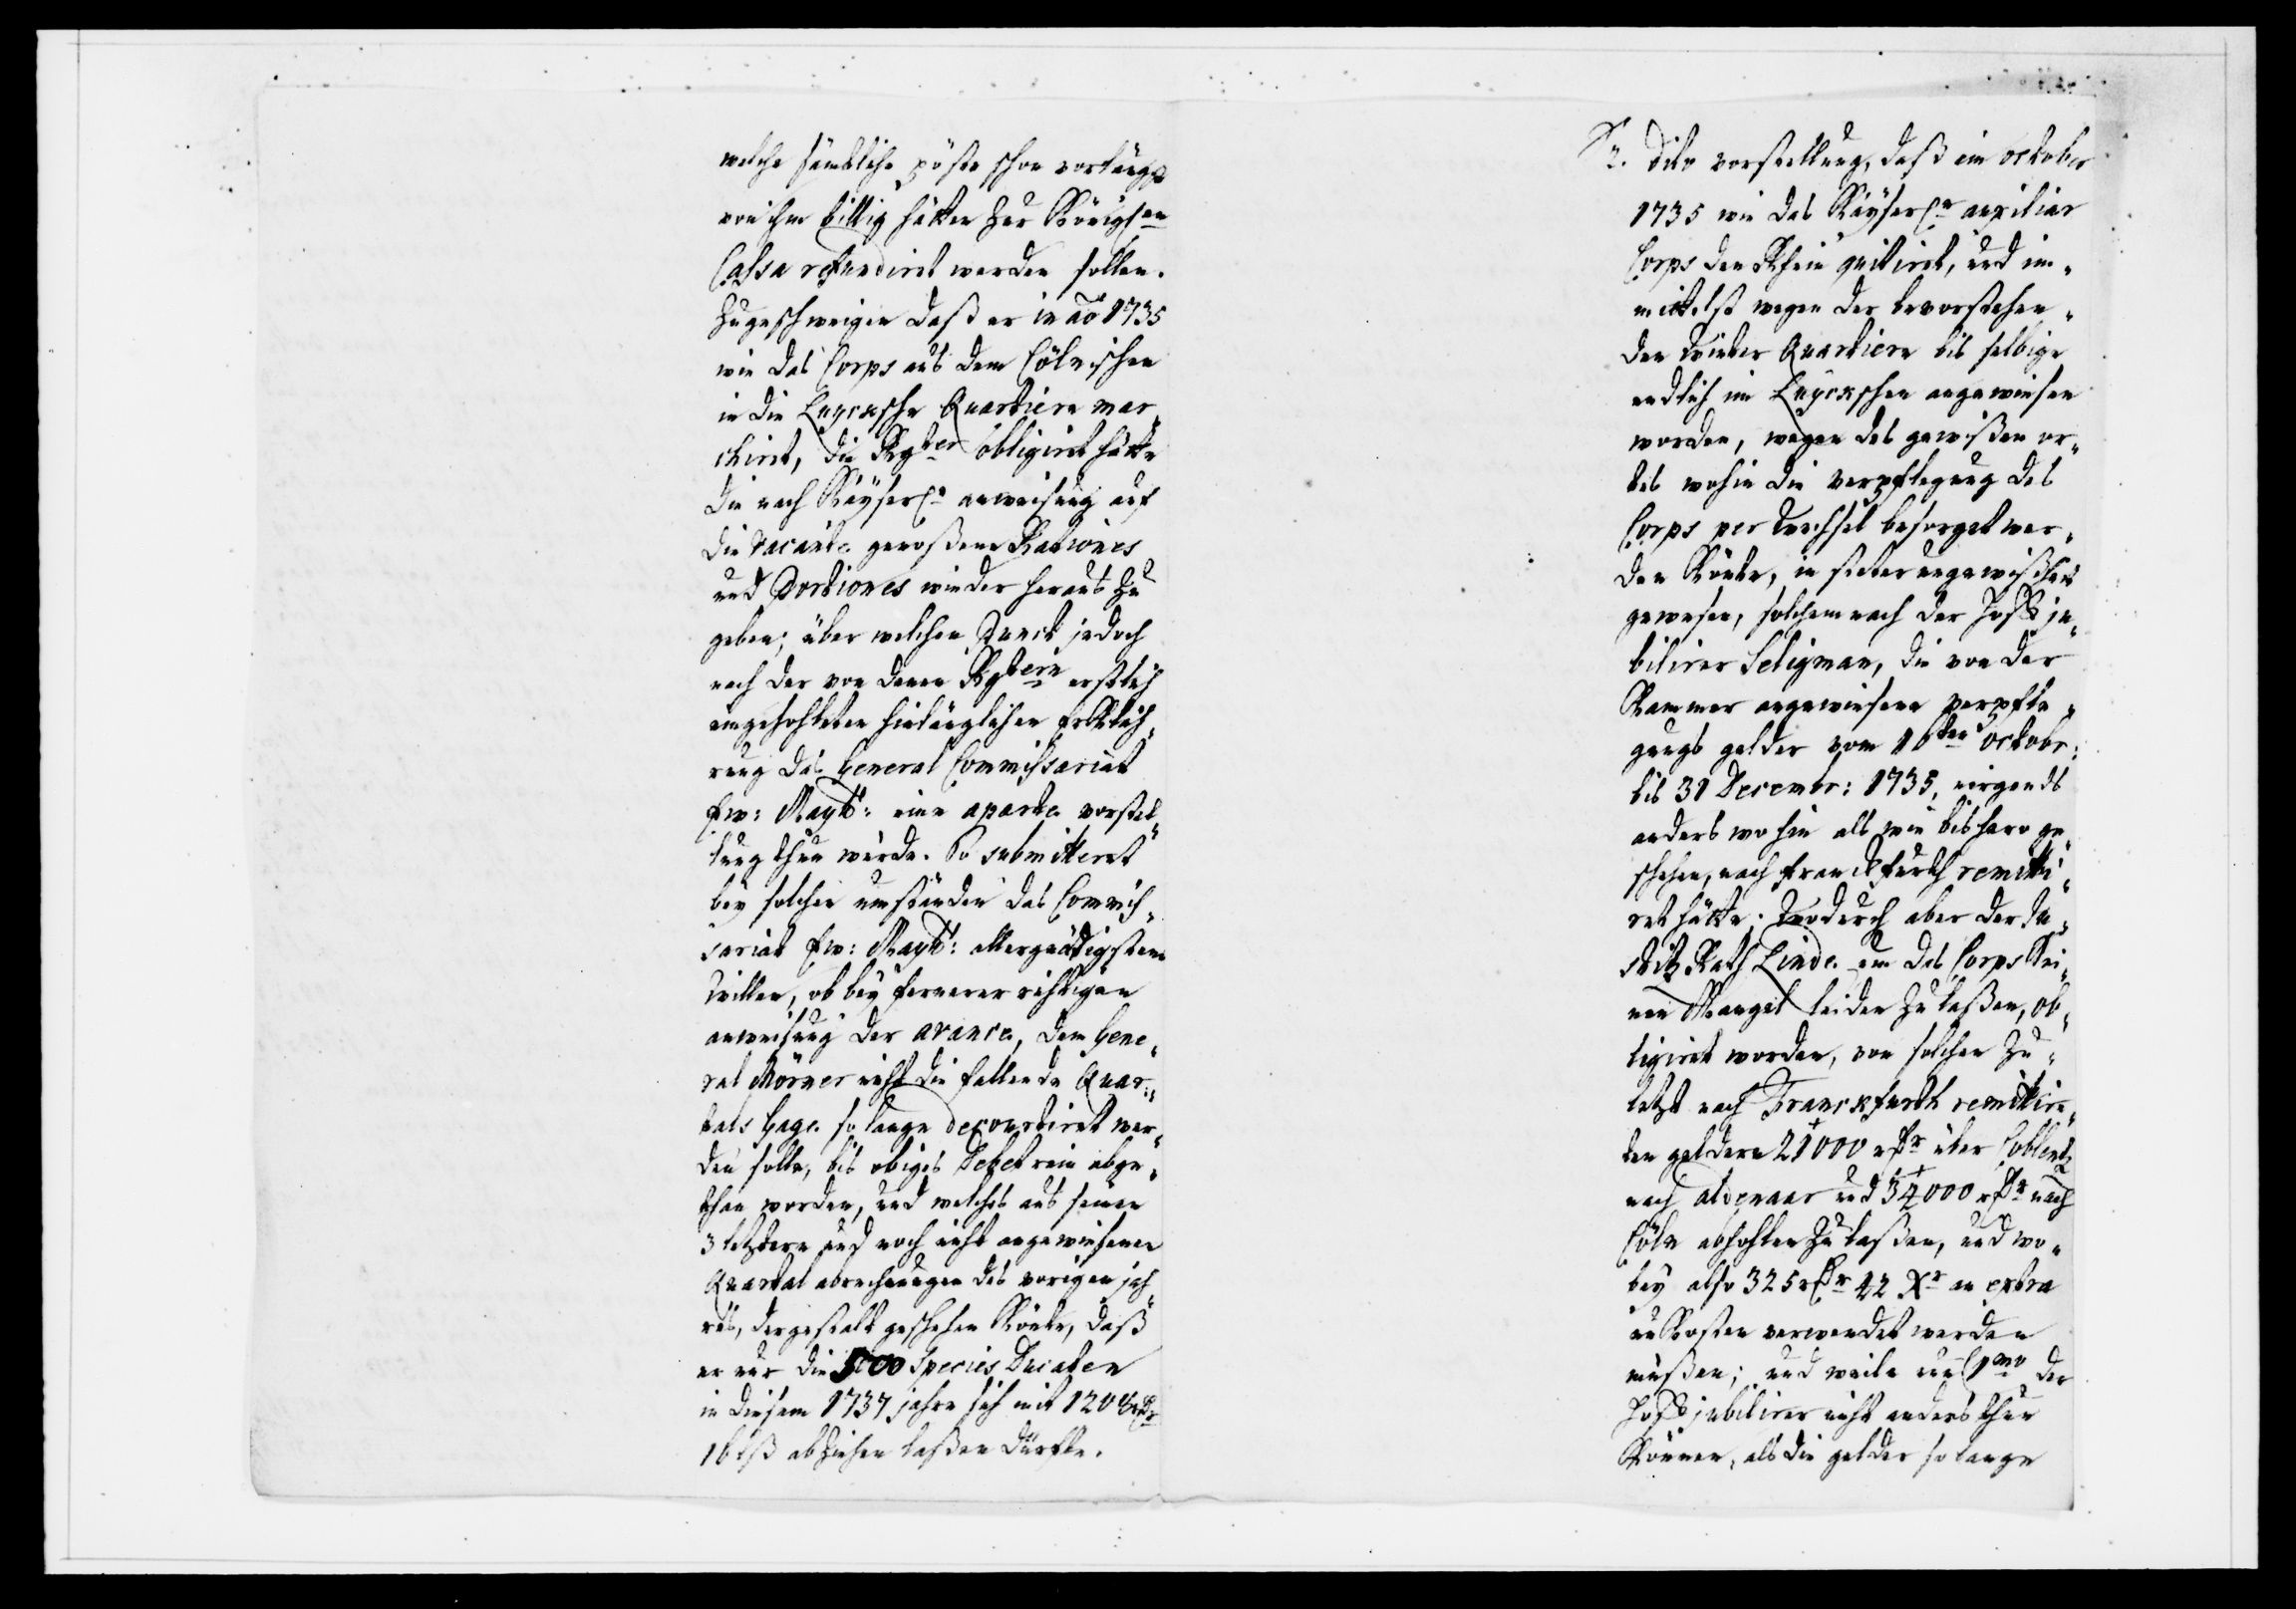 welche sämbtliche pöste schon vorlängst
von ihm billig hätten zur Königlen
Cassa refundiret werden sollen.
Zugeschweigen daß er in ao 1735
wie das Corps aus dem Cölnischen
in die Luycksche Quartiere mar„
chiret, die Rgter obligiret hätte
die nach Käyserlr anweisung auf
die vacante genoßene Rationes
und Portiones wieder heraus zu
geben; über welchen Punct jedoch
nach der von denen Rgtern erstlich
eingehohleten hinlänglichen Erkläh„
rung das General Commissariat
Ew: Maytt: eine aparte vorstel„
lung thun würde. So submitteret
bey solchen umständen das Commis„
sariat Ew: Maytt: allergnädigstem
Willen, ob bey fernerer richtigen
anweisung der avance, dem Gene„
ral Mörner nicht die fallende Quar„
tals Gage so lange decourtiret wer„
den solle, bis obiges Debet rein abge„
than worden, und welches aus seinen
3 letztern und noch nicht angewiesenen
Quartal abrechnungen des vorigen jah„
res, dergestalt geschehen Könte, daß
er nur die 500 Species Ducaten
in diesem 1737 jahre sich mit 120
16 ß abziehen laßen dürffte.
2. Dito vorstellung, daß im october
1735 wie das Käyserle auxiliar
Corps den Rhein quitiret, und im„
mittelst wegen der bevorstehen„
den Winter Quartiere bis selbige
endlich im Luyckschen angewiesen
worden, wegen des gewißen or„
tes wohin die verpflegung des
Corps per Wechsel besorget wer„
den Könte, in steter ungewisheit
gewesen, solchemnach der Hoff ju„
bilirer Seligman, die von der
Kammer angewiesene verpfle„
gungs gelder vom 16ten octobr:
bis 31 Decembr: 1735, nirgends
anders wohin als wie bishero ge„
schehen, nach Franckfurth remitti„
ret hätte; Wodurch aber der Ju„
stitz Rath Linde um das Corps Kei„
nen Mangel leiden zu laßen, ob„
ligiret worden, von solchen zu„
letzt nach Franckfurth remittire„
ten geldern 21000 über Coblentz
nach aldenaar und 34000 nach
Cöln abhohlen zu laßen, und wo„
bey also 325 42 Xr an extra
unkosten verwendet werden
müßen; und weile nun 1mo der
Hoff jubilirer nicht anders thun
Können, als die gelder so lange